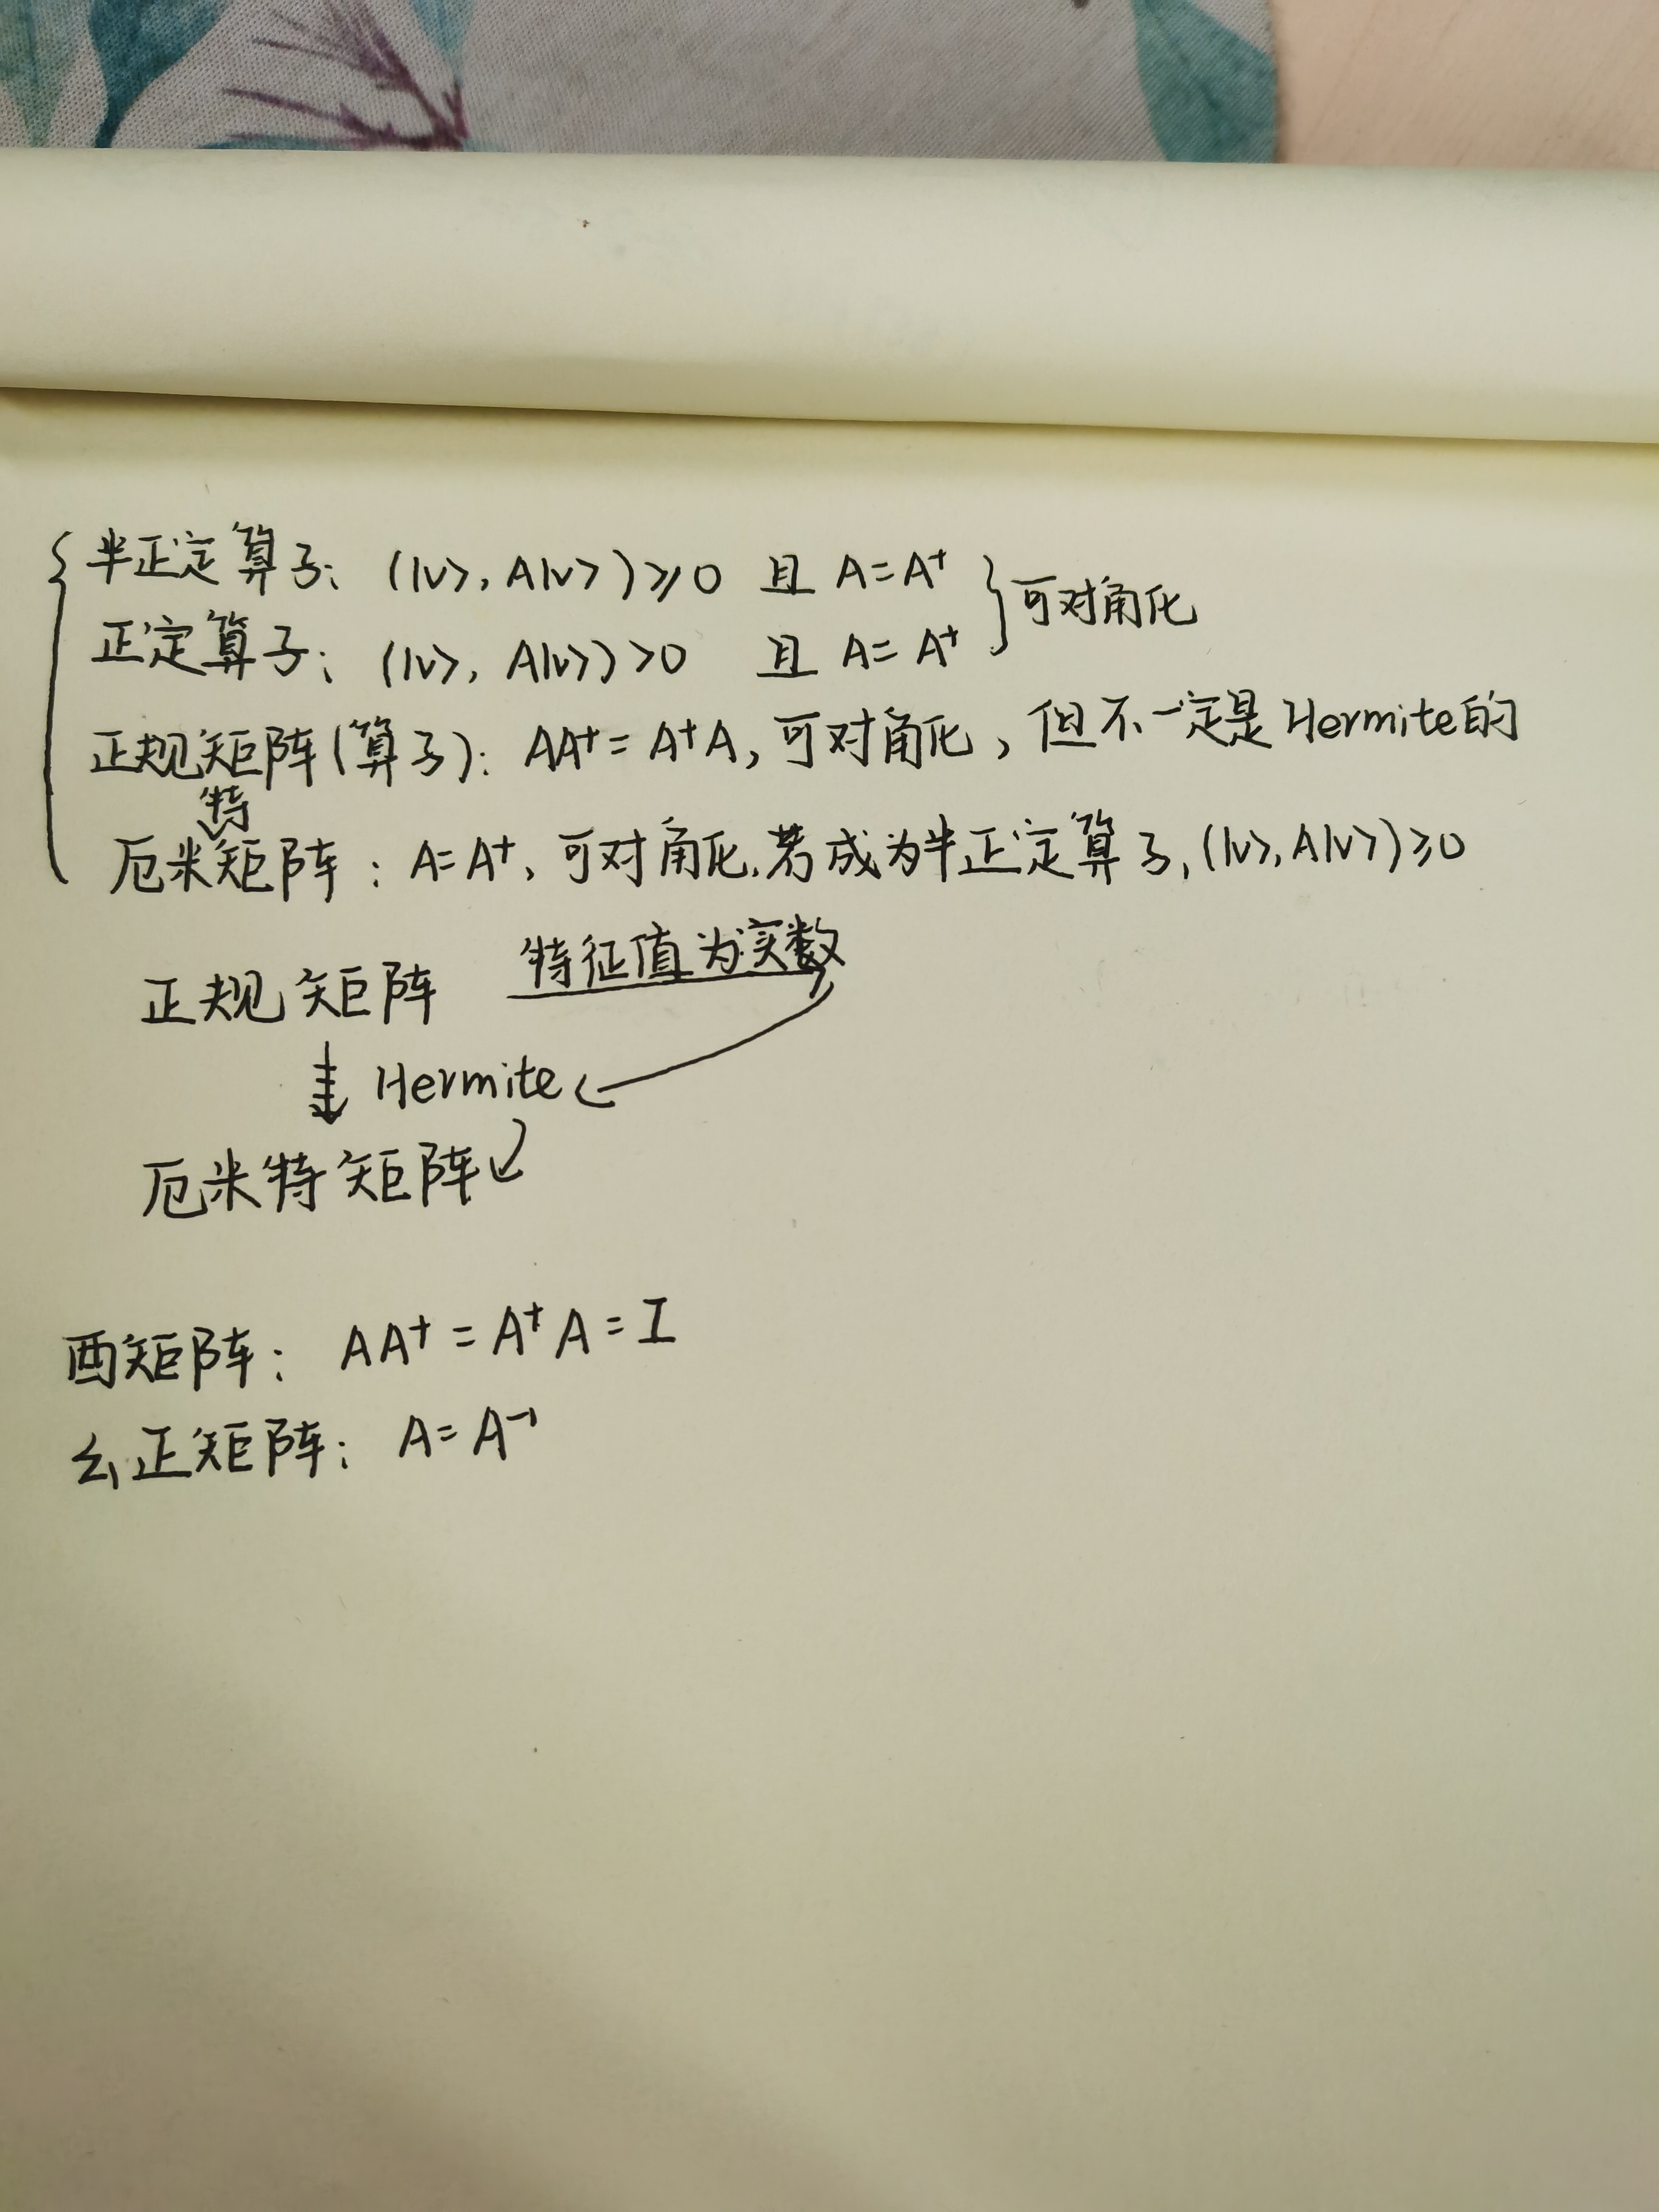 半正定算子: (|v>, A|v>)≥0 且 A=A†
正定算子: (|v>, A|v>)>0 且 A=A† }可对角化
正规矩阵(算子): AA†=A†A, 可对角化, 但不一定是Hermite的
厄米特矩阵: A=A†, 可对角化,若成为半正定算子,(|v>,A|v>)≥0
正规矩阵 特征值为实数
Hermite
厄米特矩阵
酉矩阵: AA†=A†A=I
幺正矩阵: A=A⁻¹